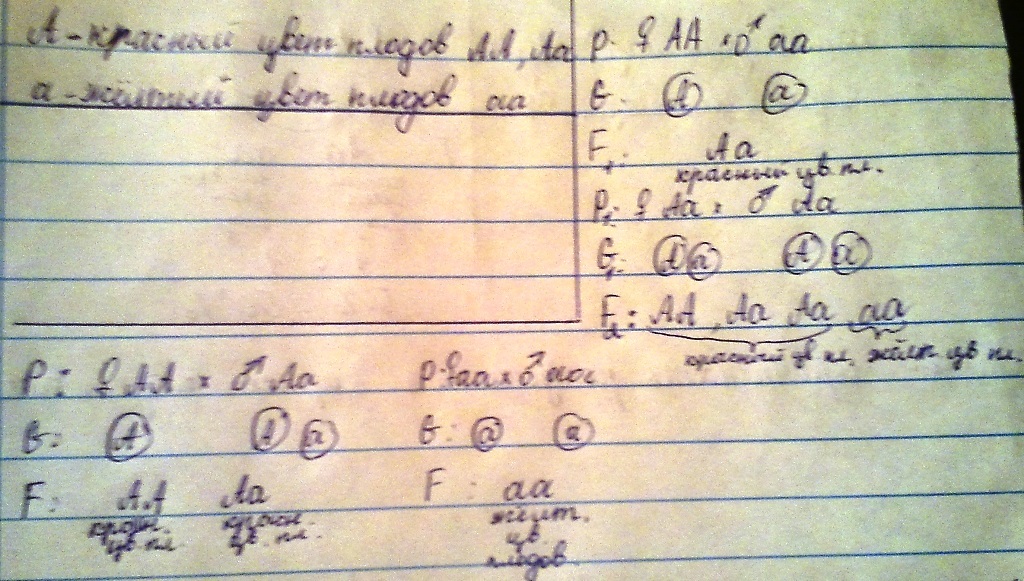 А - красный цвет плодов АА, Аа
а - жёлтый цвет плодов аа
P: ♀ АА × ♂ аа
G: А а
F₁: Аа
красный цв. пл.
P₂: ♀ Аа × ♂ Аа
G₂: А а А а
F₂: АА, Аа Аа аа
красный цв пл. жёлт. цв пл.
P: ♀ АА × ♂ Аа
G: А А а
F: АА Аа
красн. красн.
цв. пл. цв. пл.
P: ♀ аа × ♂ аа
G: а а
F: аа
жёлт.
цв.
плодов